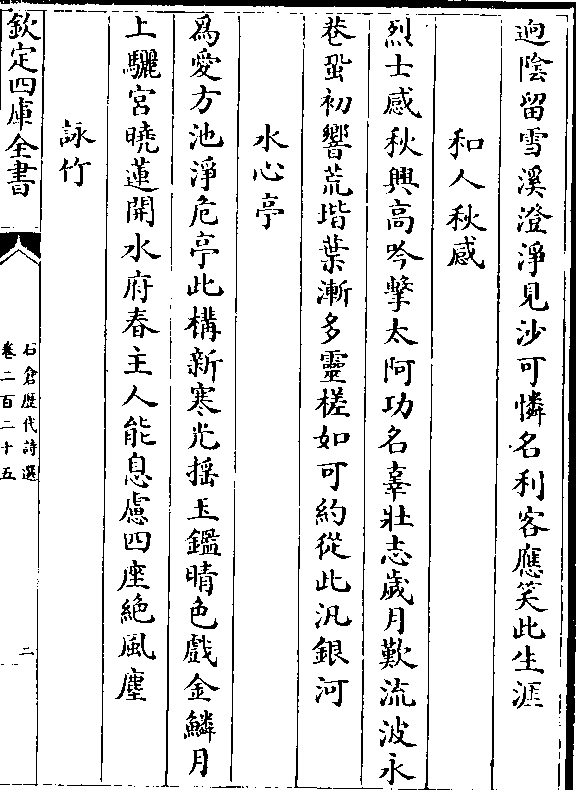 逈陰留雪溪澄淨見沙可憐名利客應笑此生涯
和人秋感
烈士感秋興高吟擊太阿功名辜壯志歲月歎流波永
巷蛩初響荒堦葉漸多靈槎如可約從此汎銀河
水心亭
爲愛方池淨危亭此構新寒光揺玉鑑晴色戲金鱗月
上驪宮曉蓮開水府春主人能息慮四座絶風塵
詠竹
欽定四庫全書
石倉歴代詩選
卷二百二十五
二